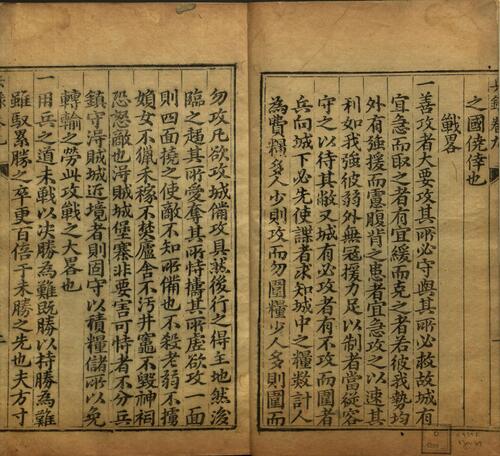 之國僥倖也
戰畧
一善攻者大要攻其所必守與其所必救故城有
宜急而取之者有宜緩而克之者若彼我勢均
外有強援而慮腹背之患者宜急攻之以速其
利如我強彼弱外無冠援力足以制者當從容
守之以待其敝又城有必攻者有不攻而圍者
兵向城下必先使諜者求知城中之糧數計人
為費糧多人少則攻而勿圍糧少人多則圍而
勿攻凡欲攻城備攻具然後行之得至地然後
臨之趨其所愛奪其所恃擣其所虛欲攻一面
則四面撓之使敵不知所備也不殺老弱不擄
婦女不獵禾稼不焚廬舍不汚井竈不毀神祠
恐怒敵也得賊城堡寨非要害可恃者不分兵
鎮守得賊城近境者則固守以積糧儲所以免
轉輸之勞此攻戰之大畧也
一用兵之道未戰以決勝為難既勝以持勝為難
雖馭累勝之卒更百倍于未勝之先也夫方寸